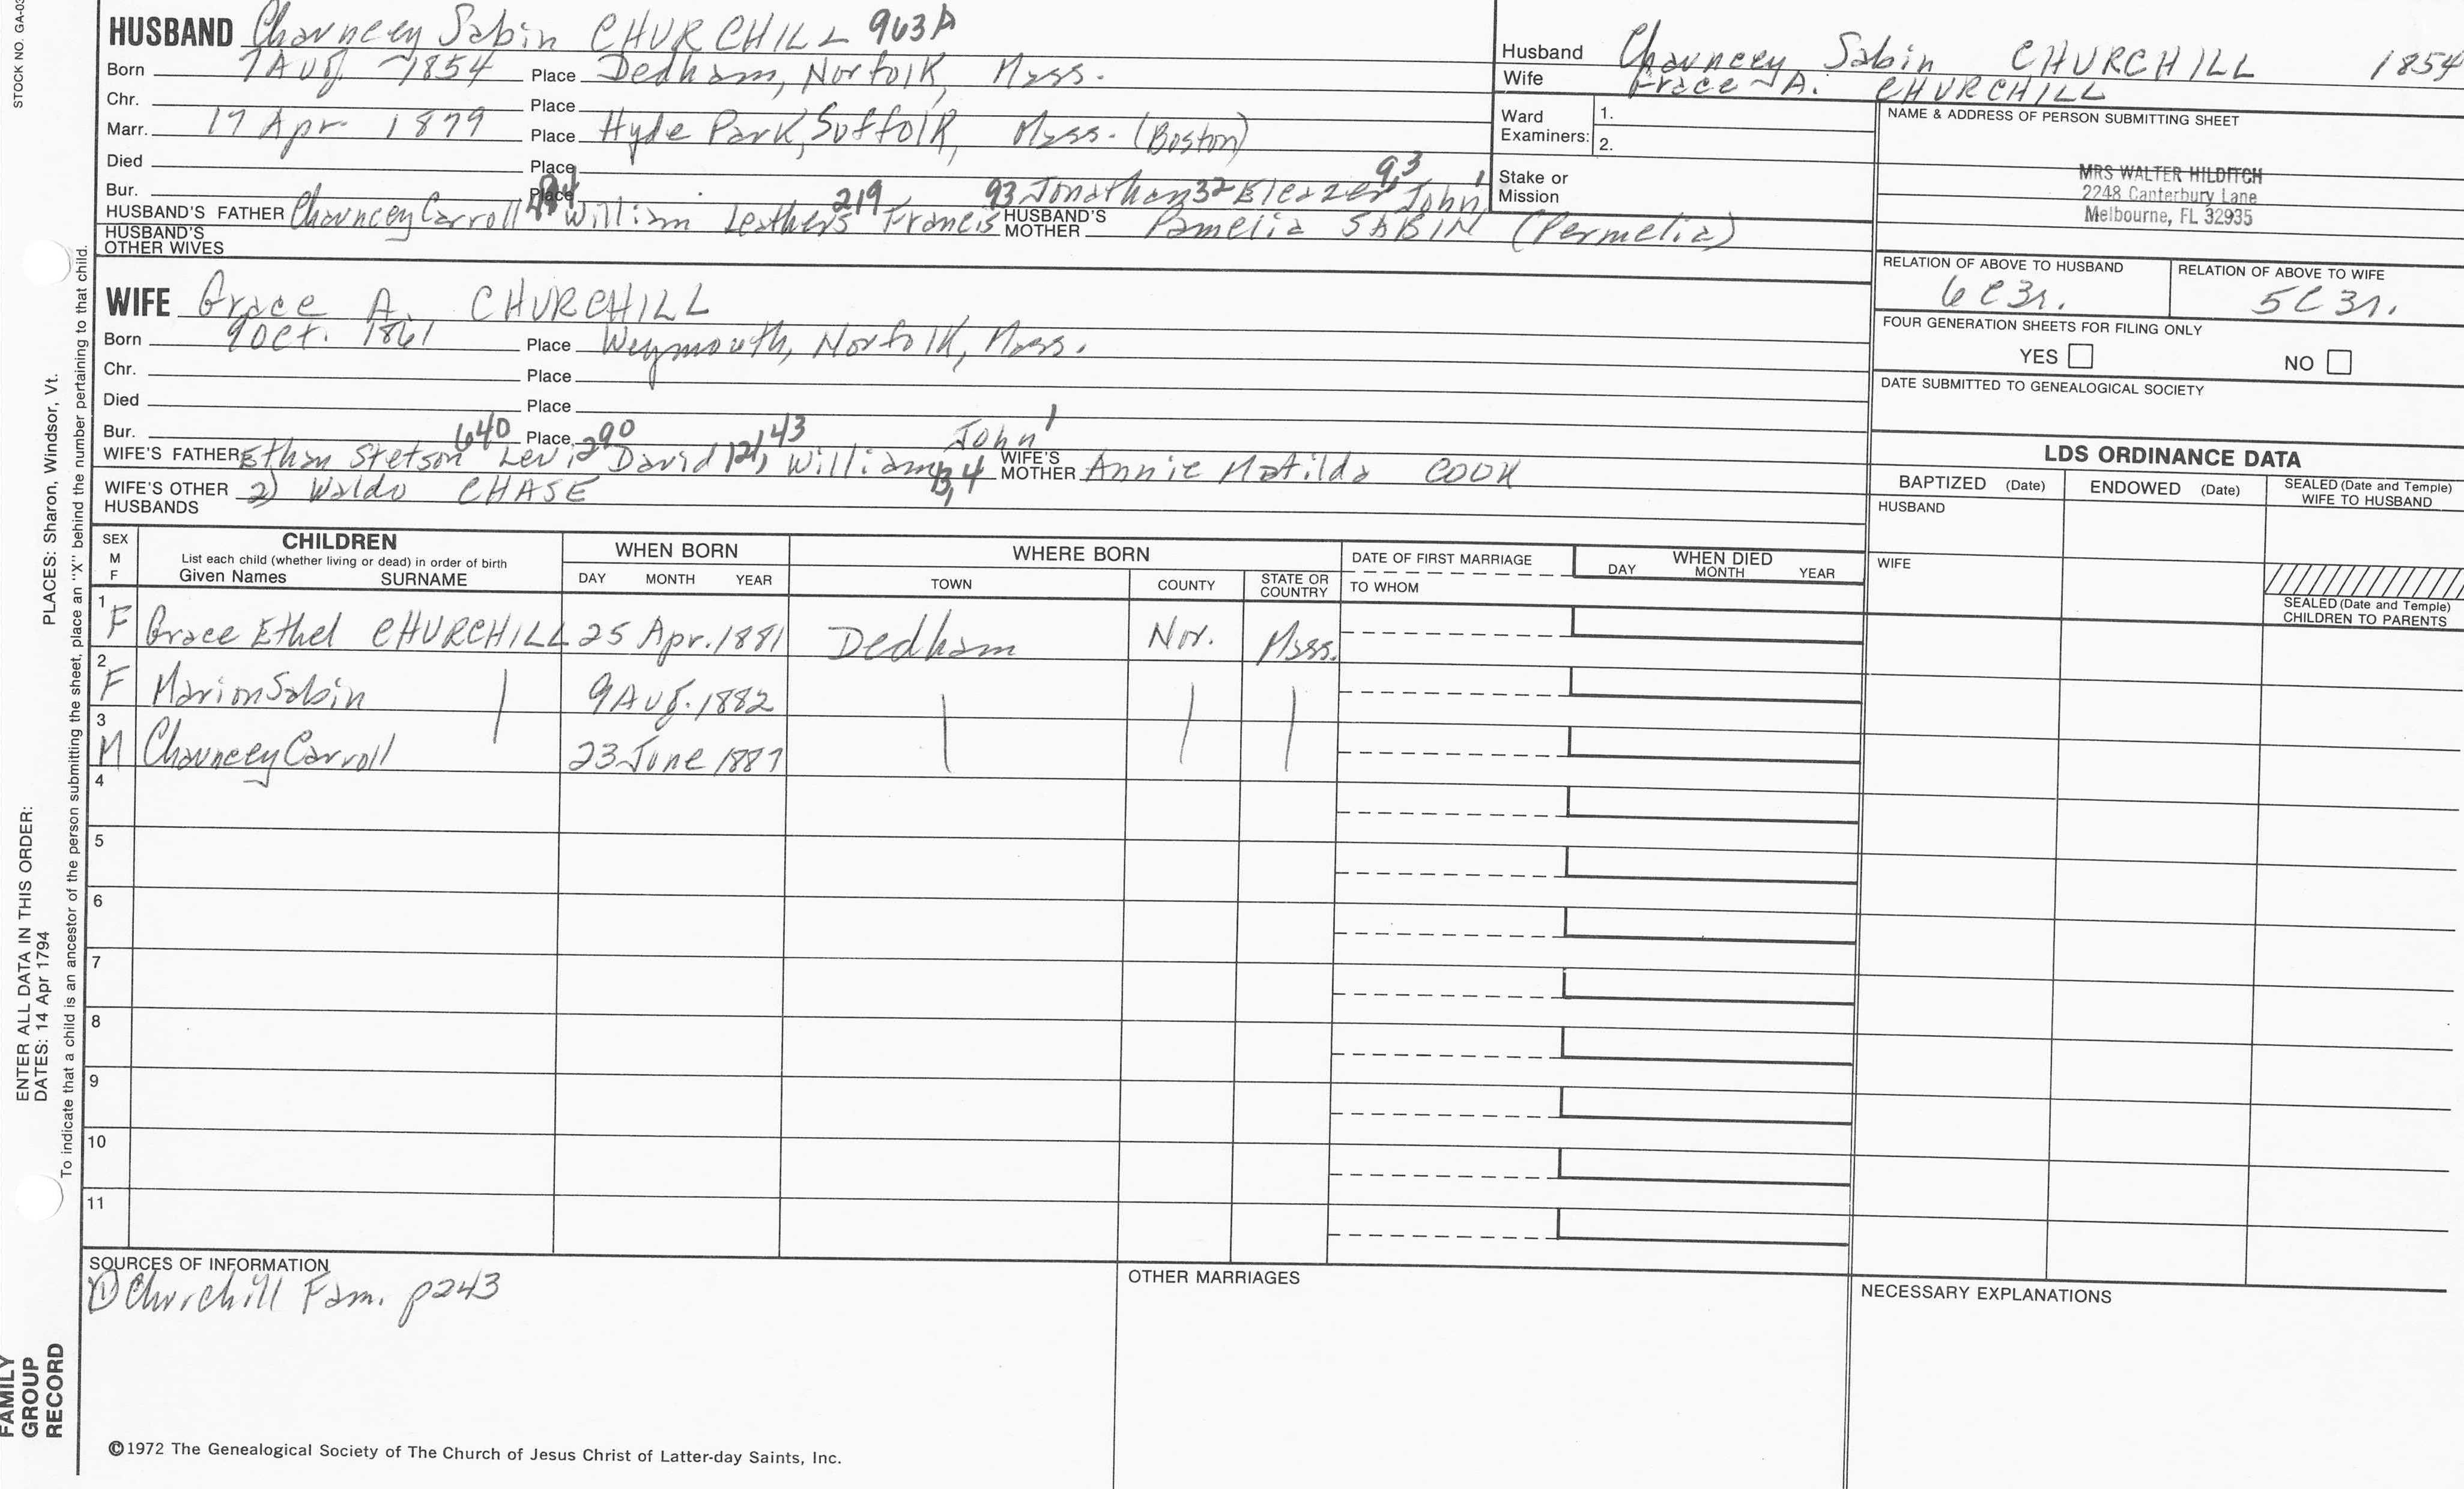 STOCK NO. GA-03
HUSBAND Chauncey Sabin CHURCHILL 963A
Born 7 Aug. 1854 Place Dedham, Norfolk, Mass.
Chr. Place
Marr. 17 Apr 1879 Place Hyde Park, Suffolk, Mass. (Boston)
Died Place
Bur. Place
HUSBAND'S FATHER Chauncey Carroll William Leathers 219 Francis 93 Jonathan 32 Eleazer 9,3 John 1
HUSBAND'S MOTHER Pamelia SABIN (Permelia)
HUSBAND'S OTHER WIVES
WIFE Grace A. CHURCHILL
Born 9 Oct. 1861 Place Weymouth, Norfolk, Mass.
Chr. Place
Died Place
Bur. Place
WIFE'S FATHER Ethan Stetson 640 Levi 290 David 121, 43 William 13, 4 John 1
WIFE'S MOTHER Annie Matilda COOK
WIFE'S OTHER HUSBANDS 2) Waldo CHASE
Husband Chauncey Sabin CHURCHILL 1854
Wife Grace A. CHURCHILL
Ward Examiners: 1.
2.
Stake or Mission
NAME & ADDRESS OF PERSON SUBMITTING SHEET
MRS WALTER HILDITCH
2248 Canterbury Lane
Melbourne, FL 32935
RELATION OF ABOVE TO HUSBAND RELATION OF ABOVE TO WIFE
6C3r. 5C3r.
FOUR GENERATION SHEETS FOR FILING ONLY
YES NO
DATE SUBMITTED TO GENEALOGICAL SOCIETY
LDS ORDINANCE DATA
BAPTIZED (Date) ENDOWED (Date) SEALED (Date and Temple) WIFE TO HUSBAND
HUSBAND
WIFE
SEALED (Date and Temple) CHILDREN TO PARENTS
SEX M F
CHILDREN
List each child (whether living or dead) in order of birth
Given Names SURNAME
WHEN BORN
DAY MONTH YEAR
WHERE BORN
TOWN COUNTY STATE OR COUNTRY
DATE OF FIRST MARRIAGE
TO WHOM
WHEN DIED
DAY MONTH YEAR
1 F Grace Ethel CHURCHILL 25 Apr. 1881 Dedham Nor. Mass.
2 F Marion Sabin 9 Aug. 1882
3 M Chauncey Carroll 23 June 1887
4
5
6
7
8
9
10
11
SOURCES OF INFORMATION
① Churchill Fam. p243
OTHER MARRIAGES
NECESSARY EXPLANATIONS
©1972 The Genealogical Society of The Church of Jesus Christ of Latter-day Saints, Inc.
FAMILY
GROUP
RECORD
ENTER ALL DATA IN THIS ORDER:
DATES: 14 Apr 1794
PLACES: Sharon, Windsor, Vt.
To indicate that a child is an ancestor of the person submitting the sheet, place an "X" behind the number pertaining to that child.